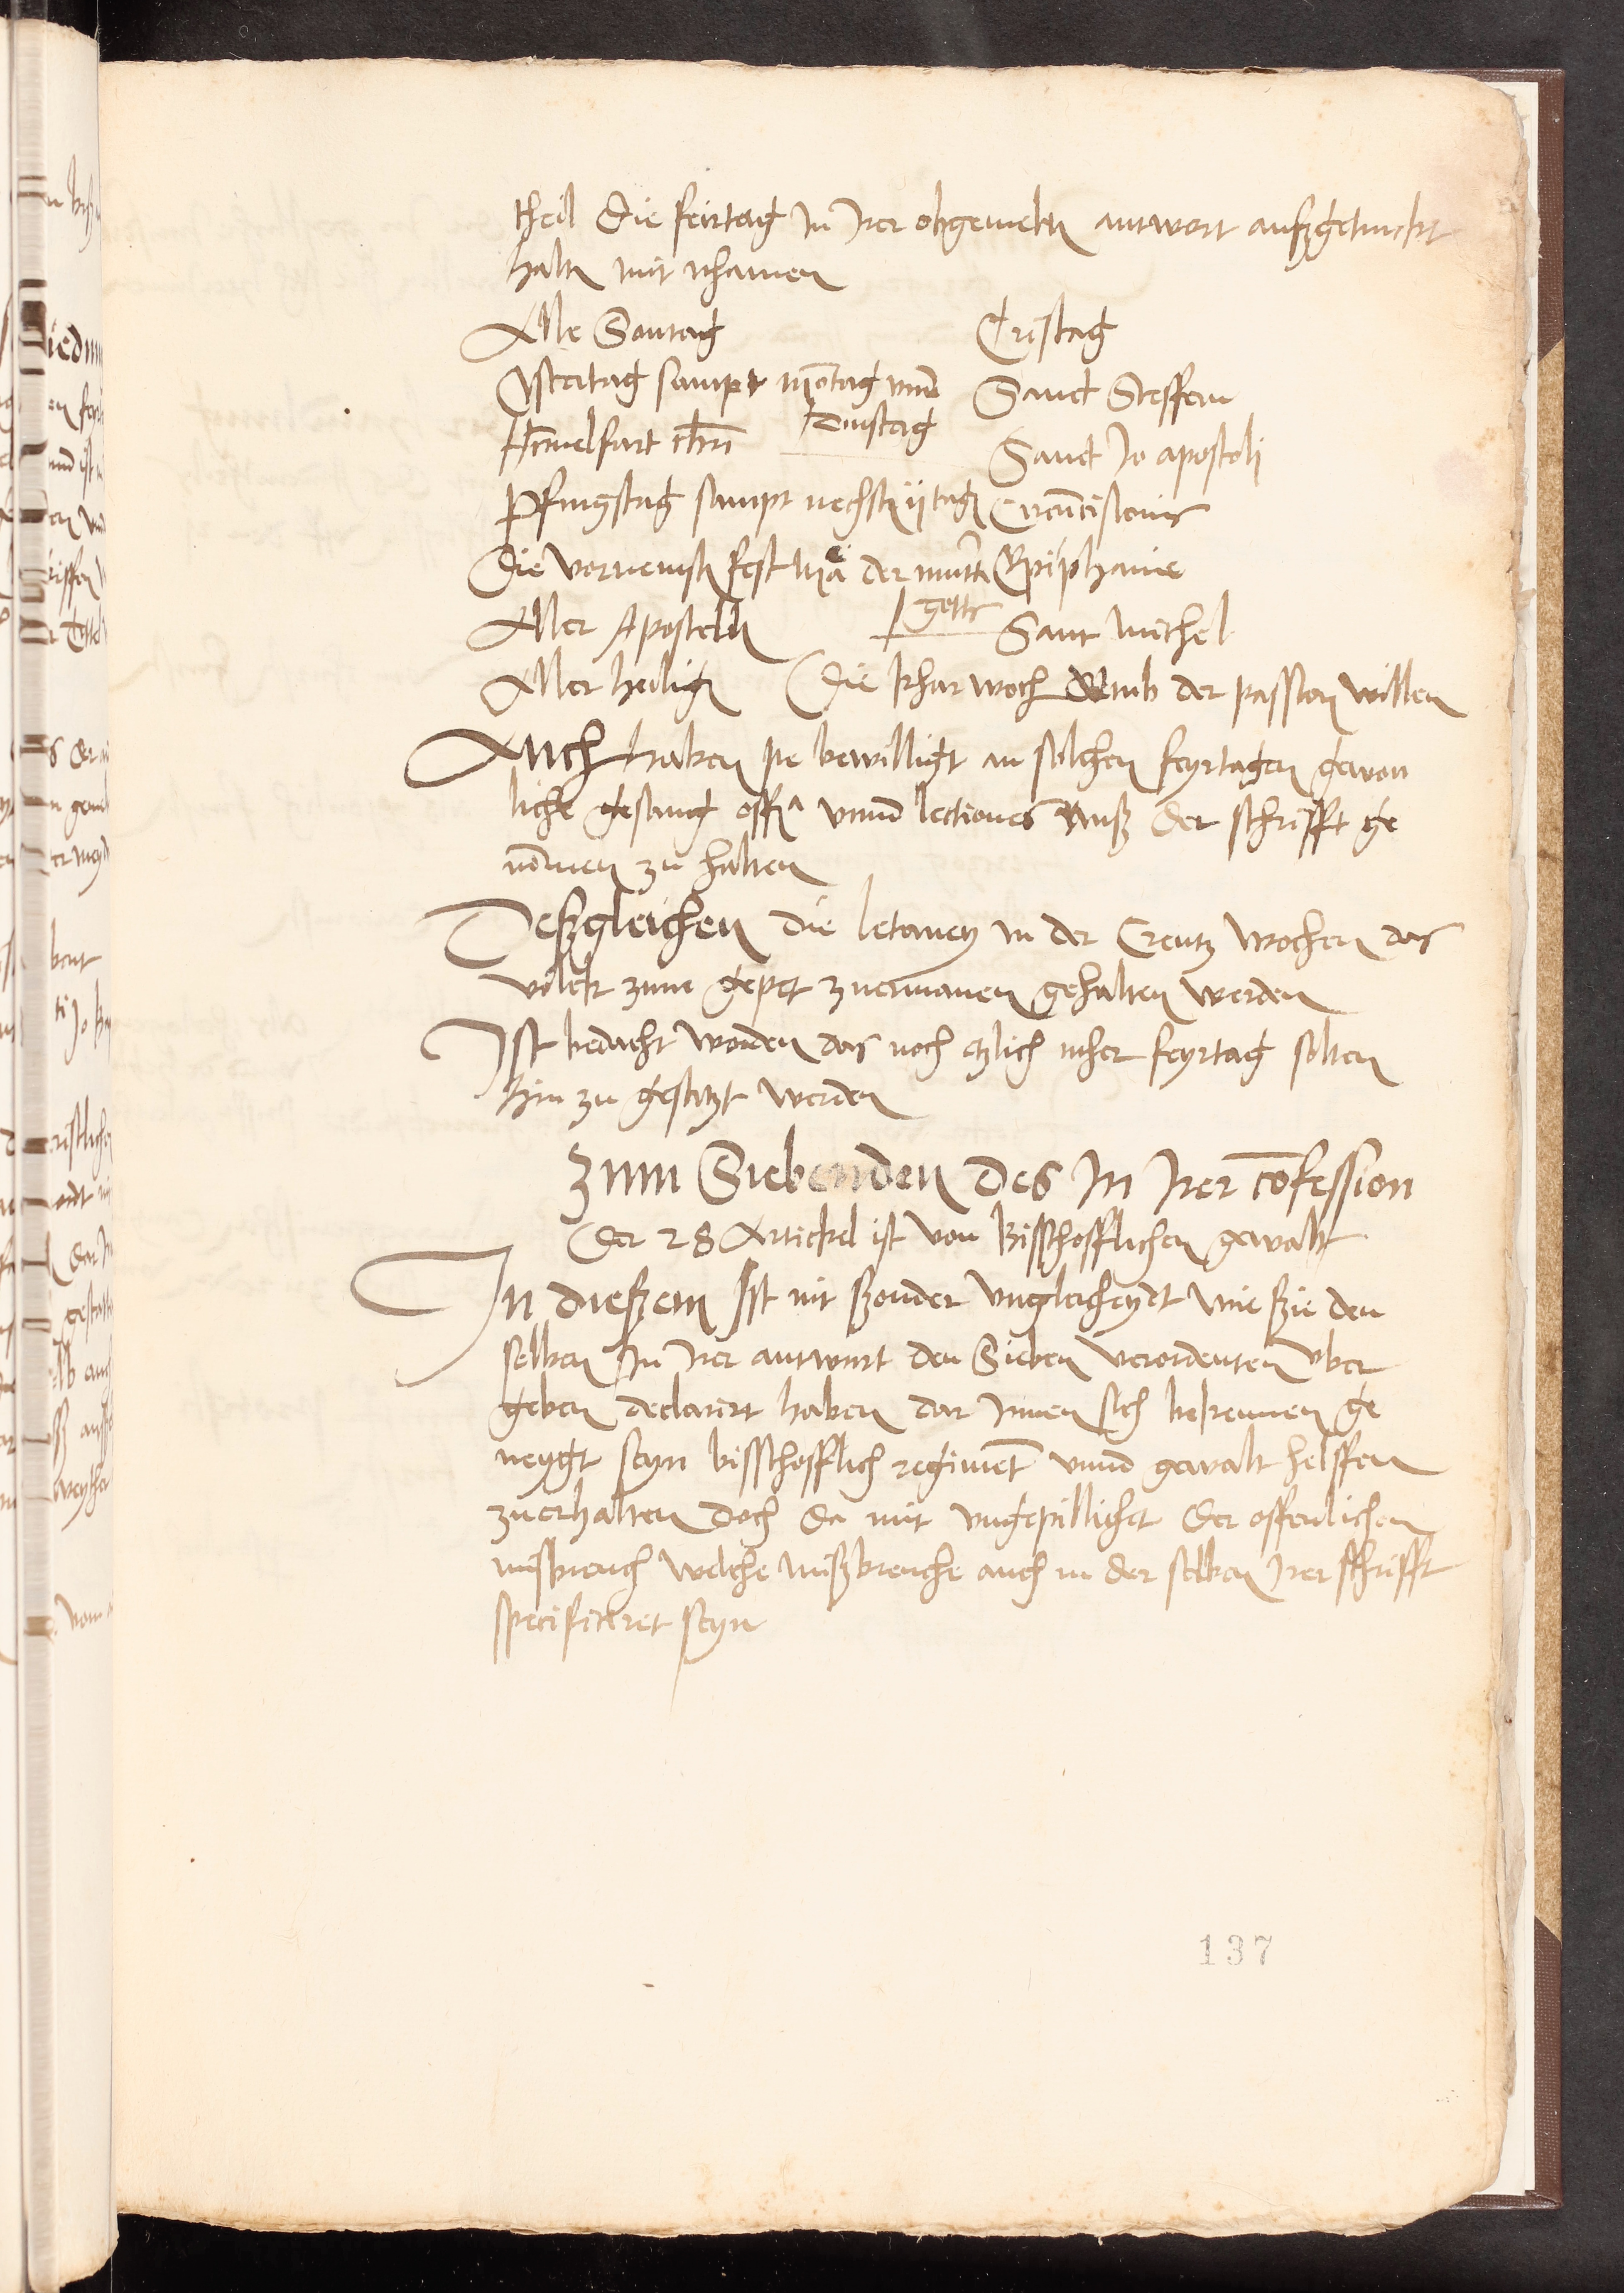 theil Die feirtag In Irer obgemeltn antwort auſzgetruckt
haltn mit nhamen
Alle Sontag
Cristag
Ostertag sampt mōtag vnnd
dinstag
Sanct Steffem
Himelfart chri
Sanct Jo apostoli
Pfingstag sampt nechstn ij tagn
Circūcisionis
Die vornemstn fest Marie der muttr
gotts
Epiphanie
Aller Apostelln
Sant Michel
Aller heiligen Die khar woch vmb der passion willen
Auch haben sie bewilligt an solchen feyrtagen gewon
liche gesang offi vnnd lectiones auß der schrifft ge
nōmen zu halten
Deßgleichen die letaney in der Creutz wochen das
volck zum gepet zuermanen gehalten werden
Ist bedacht worden das noch etzlich meher feyrtag solten
hin zu gesetzt werden
Zum Siebenden des In Irer cōfession
Der 28 Artickel ist von Bisschofflichen gewalt
In dießem Ist nit ßonder vngleicheydt wie ßie den
selben In Irer antwurt den Sieben verordenten vber
geben declarirt haben dar Innen sich bekennen ge
neygt seyn bisschofflich regimēt vnnd gewalt helffen
zuerhalten doch da mit vngepillichet der offentlichen
misbreuch welche mißbreuche auch in der selben Irer schrifft
specificeret seyn
137